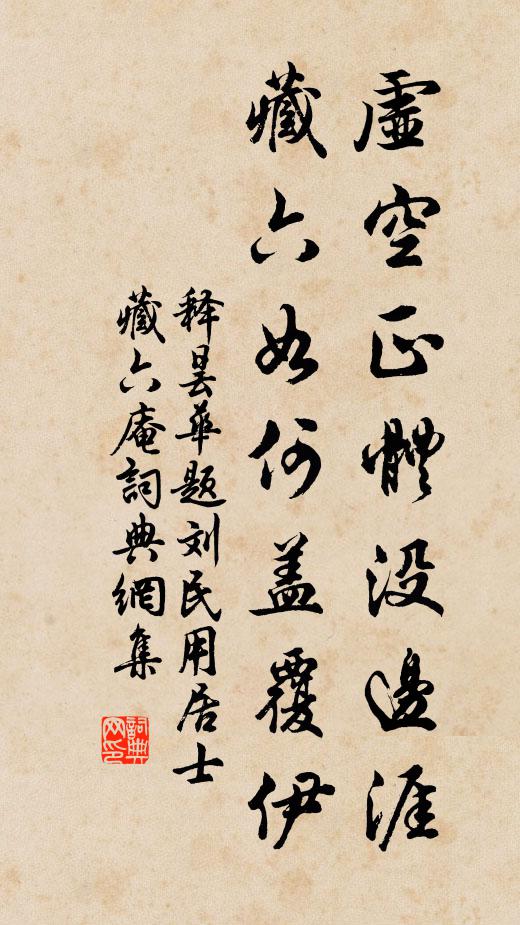 虛空正體没邊涯
藏六如何盖覆伊
释曇華题刘民用居士
藏六庵詞典網集
詞典网印